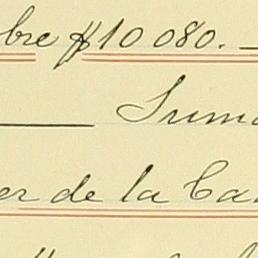 bre $10 080. —
— Suma
er de la Ca